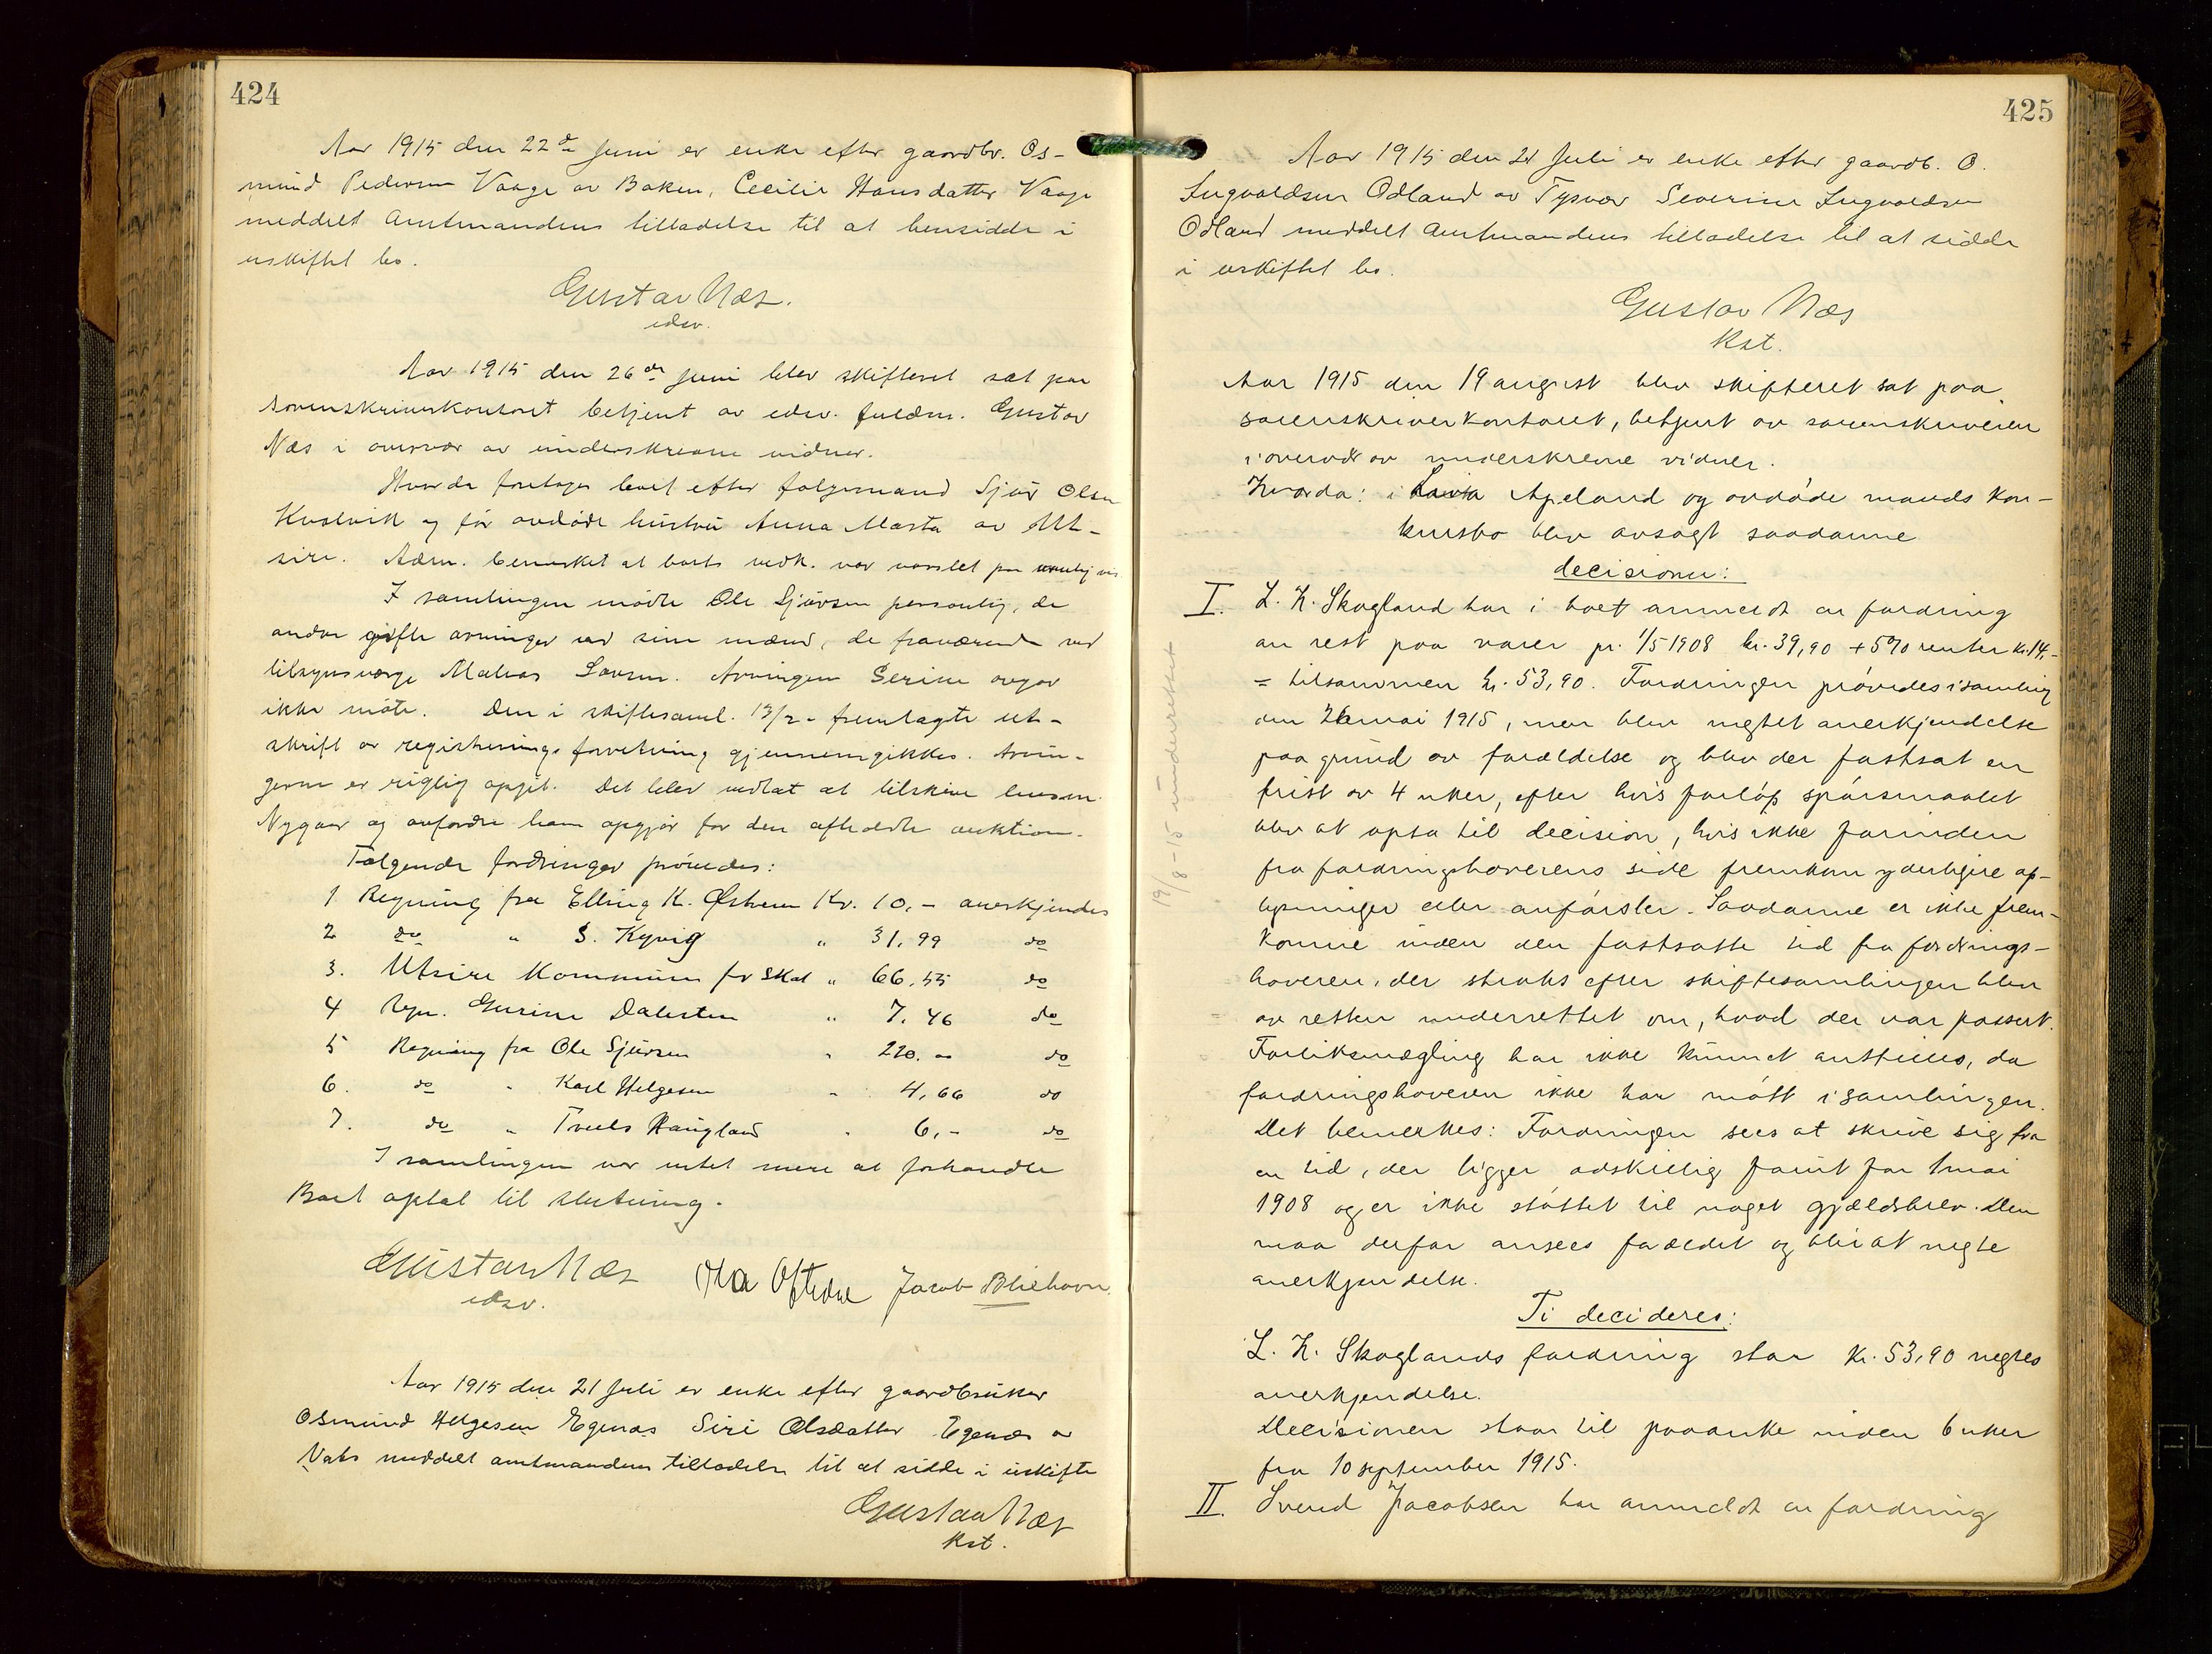 424
Aar 1915 den 22de Juni er enke efter gaardbr. Os-
mund Pedersen Vaage av Boken, Cecilie Hansdatter Vaage
meddelt Amtmandens tilladelse til at hensidde i
uskiftet bo.
Gustav Næs.
edsv.
Aar 1915 den 26de Juni blev skifteret sat paa
sorenskriverkontoret betjent av edsv. fuldm. Gustav
Næs i overvær av underskrevne vidner.
Hvorda foretoges boet efter følgemand Sjur Olsen
Kvalvik og før avdøde hustru Anna Marta av Ut-
sire. Adm. bemerket at boets vedk. var varslet paa
I samlingen mødte Ole Sjursen personlig, de
andre gifte arvinger ved sine mænd, de fraværende ved
tilsynsverge Matias Larsen. Arvingen Serine avgav
ikke møte. Den i skiftesaml. 13/2- fremlagte ut-
skrift av registreringsforretning gjennemgikkes. Arvin-
gerne er rigtig opgit. Det blev vedtat at tilskrive lensm.
Nygaar og anfordre ham opgjør for den afholdte auktion.
Følgende fordringer prøvedes:
1 Regning fra Elling K. Østhem Kr. 10,- anerkjendes
2 do " S. Kyvig " 31,99 do
3. Utsire Kommune for skat " 66,55 do
4 Regn. Gurine Dalesten " 7,46 do
5 Regning fra Ole Sjursen " 220.00 do
6. do " Karl Helgesen " 4,66 do
7. do " Truels Haugland " 6,- do
I samlingen var intet mere at forhandle
Boet optat til slutning.
Gustav Næs Ola Oftedal Jacob Bliehovn.
edsv.
Aar 1915 den 21 Juli er enke efter gaardbruker
Osmund Helgesen Egenæs Siri Olsdatter Egenæs av
Vats meddelt amtmandens tilladelse til at sidde i uskifte
Gustav Næs
kst.
425
Aar 1915 den 21 Juli er enke efter gaardb. O.
Ingvaldsen Odland av Tysvær Severine Ingvaldsen
Odland meddelt Amtmandens tilladelse til at sidde
i uskiftet bo.
Gustav Næs
kst.
Aar 1915 den 19 august blev skifteret sat paa
sorenskriverkontoret, betjent av sorenskriveren
i overvær av underskrevne vidner.
Hvorda: i Apeland og avdøde mands kon-
kursbo blev avsagt saadanne
decisioner:
I. L. H. Skogland har i boet anmeldt en fordring
an rest paa varer pr. 1/5 1908 kr. 39,90 + 5% renter kr. 14,-
= tilsammen kr. 53,90. Fordringen prøvedes i samling
den 26 mai 1915, men blev negtet anerkjendelse
paa grund av forældelse og blev der fastsat en
frist av 4 uker, efter hvis forløp spørsmaalet
blev at opta til decision, hvis ikke forinden
fra fordringshaverens side fremkom yderligere op-
lysninger eller anførsler. Saadanne er ikke frem-
komne inden den fastsatte tid fra fordrings-
haveren, der straks efter skiftesamlingen blev
av retten underrettet om, hvad der var passert.
Forliksmægling har ikke kunnet anstilles, da
fordringshaveren ikke har møtt i samlingen.
Det bemerkes: Fordringen sees at skrive sig fra
en tid, der ligger adskillig forut for 1 mai
1908 og er ikke støttet til noget gjældsbrev. Den
maa derfor ansees forældet og blir at negte
anerkjendelse.
Ti decideres:
L. H. Skoglands fordring stor kr. 53,90 negtes
anerkjendelse.
Decisionen staar til paaanke inden 6 uker
fra 10 september 1915.
II. Svend Jacobsen har anmeldt en fordring
19/8-15 underrettet